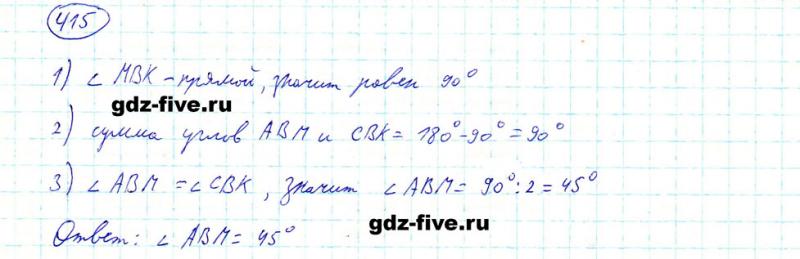 415
1) ∠ MBK – прямой, значит равен 90°
gdz-five.ru
2) сумма углов ABM и CBK = 180°-90° = 90°
3) ∠ ABM = ∠ CBK, значит ∠ ABM = 90° : 2 = 45°
gdz-five.ru
Ответ: ∠ ABM = 45°